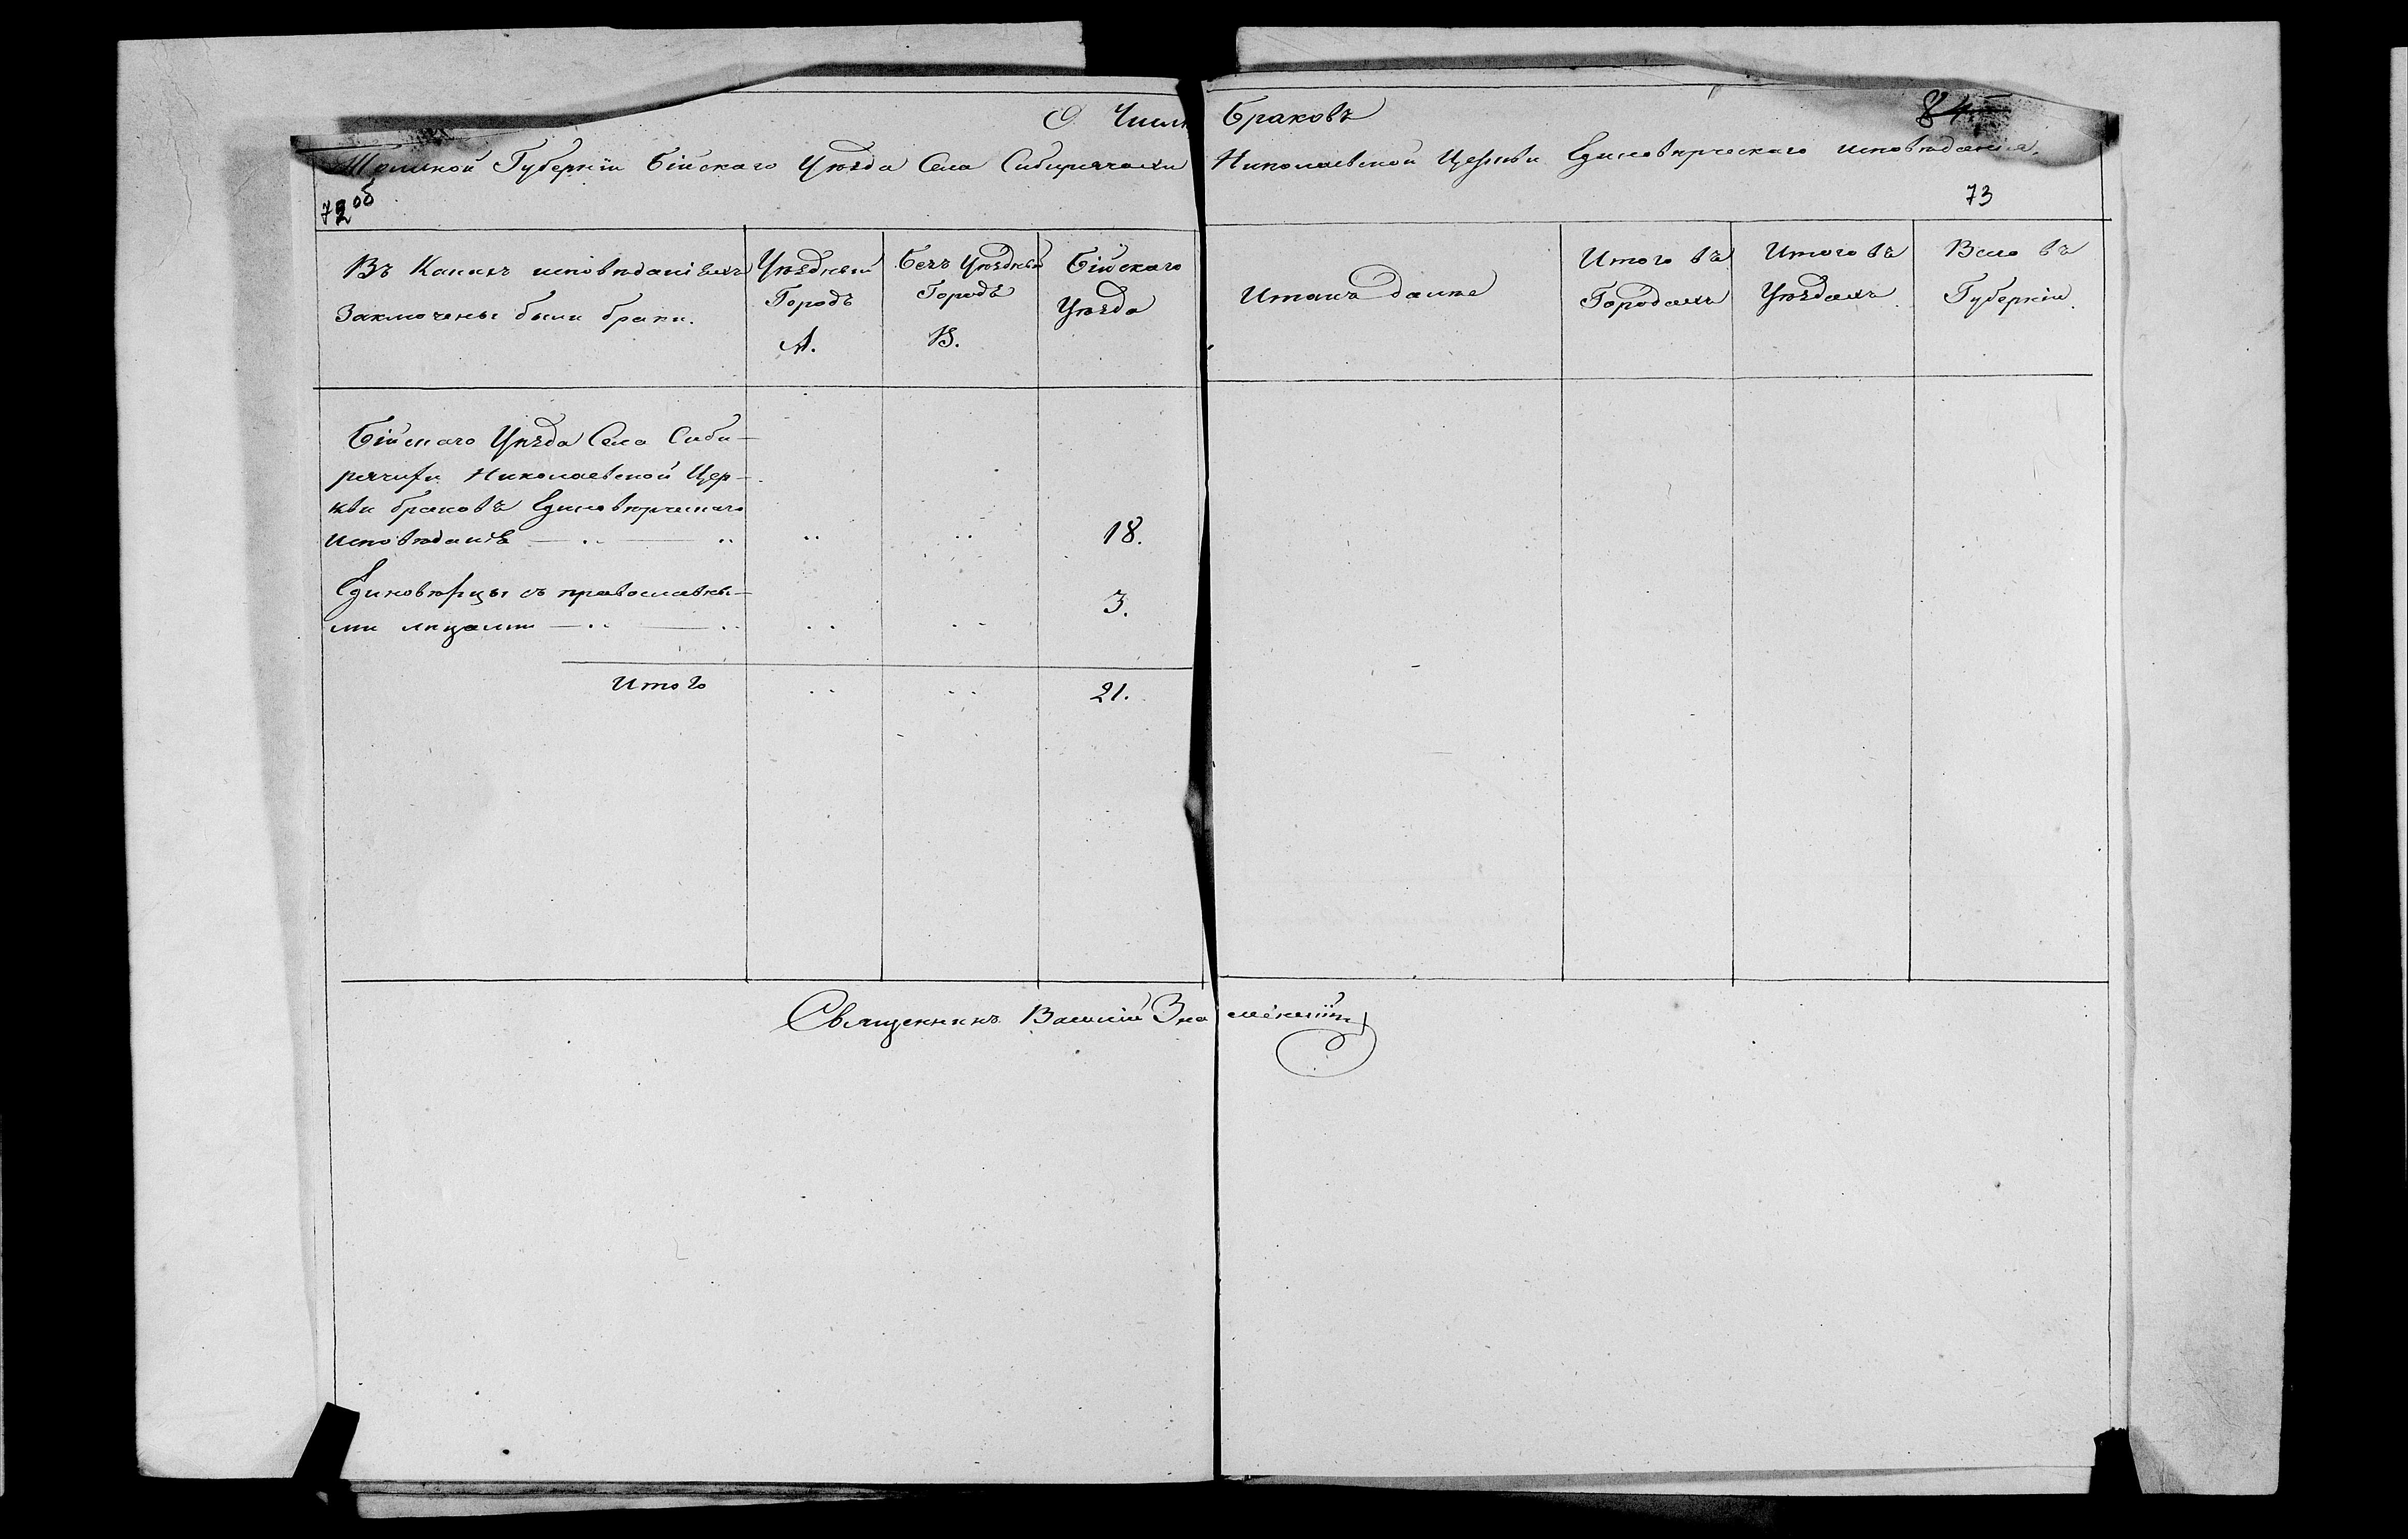 О Числѣ Браковъ
84
Томской Губерніи Бійскаго Уѣзда Села Сибирячихи Николаевской Церкви Единовѣрческаго исповѣданія.
72 об
73
Въ Какихъ исповѣданіяхъ Заключены были браки.
Уѣздный Городъ А.
Безъ Уѣздный Городъ В.
Бійскаго Уѣзда
Итакъ далѣе
Итого въ Городахъ
Итого въ Уѣздахъ
Всего въ Губерніи.
Бійскаго Уѣзда Села Сиби-
рячихи Николаевской Цер-
кви браковъ Единовѣрческаго
исповѣданія — .. — .. .. .. 18.
Единовѣрцы съ православны-
ми лицами — .. — .. .. .. 3.
Итого .. .. 21.
Священникъ Василій Знаменскій